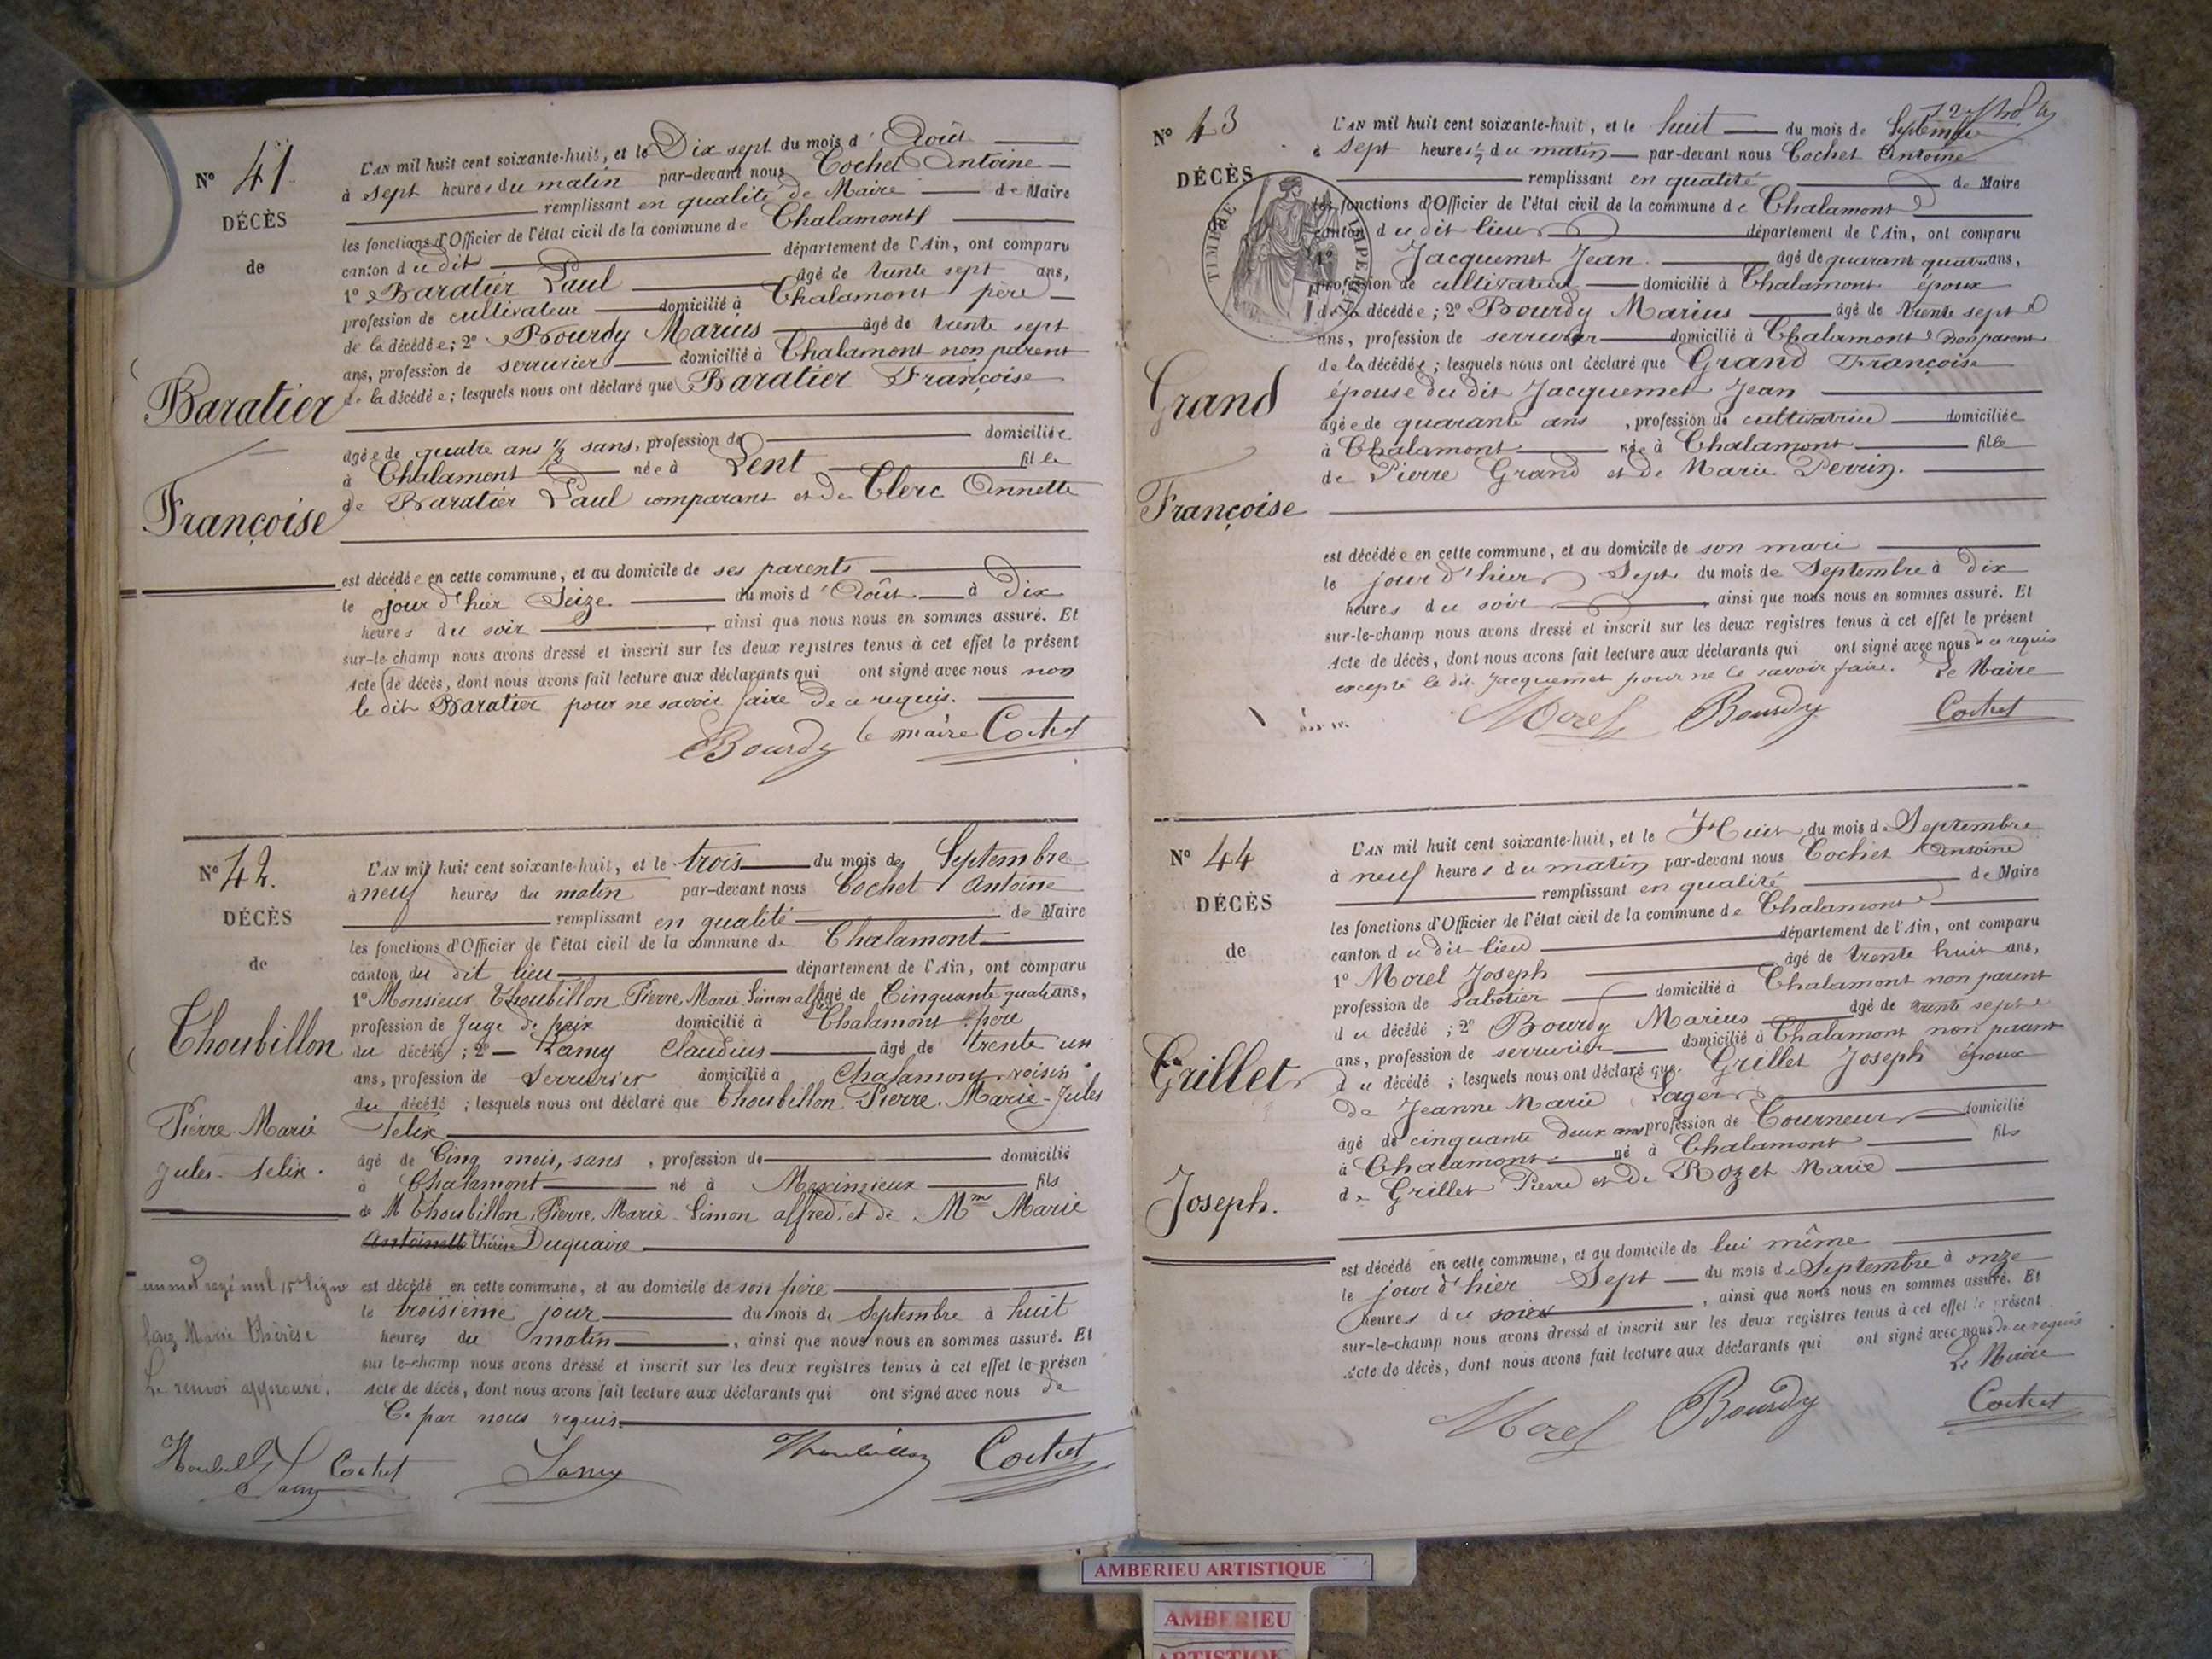 N° 41
DÉCÈS
de
Baratier
Françoise
L'AN mil huit cent soixante-huit, et le Dix sept du mois d' Août
à sept heures du matin par-devant nous Cochet Antoine
remplissant en qualité de Maire de Maire
les fonctions d'Officier de l'état civil de la commune de Chalamont
canton du dit département de l'Ain, ont comparu
1° Baratier Paul âgé de trente sept ans,
profession de cultivateur domicilié à Chalamont père
de la décédée; 2° Bourdy Marius âgé de trente sept
ans, profession de serrurier domicilié à Chalamont non parent
de la décédée; lesquels nous ont déclaré que Baratier Françoise
âgée de quatre ans 1/2 sans, profession de domiciliée
à Chalamont née à Lent fille
de Baratier Paul comparant et de Clerc Annette
est décédée en cette commune, et au domicile de ses parents
le jour d'hier Seize du mois d' Août à Dix
heures du soir, ainsi que nous nous en sommes assuré. Et
sur-le-champ nous avons dressé et inscrit sur les deux registres tenus à cet effet le présent
Acte de décès, dont nous avons fait lecture aux déclarants qui ont signé avec nous non
le dit Baratier pour ne savoir faire de ce requis.
Bourdy le maire Cochet
N° 42.
DÉCÈS
de
Thoubillon
Pierre Marie
Jules-Felix.
L'AN mil huit cent soixante-huit, et le trois du mois de Septembre
à neuf heures du matin par-devant nous Cochet Antoine
remplissant en qualité de Maire
les fonctions d'Officier de l'état civil de la commune de Chalamont
canton du dit lieu département de l'Ain, ont comparu
1° Monsieur Thoubillon Pierre, Marie Simon alfred âgé de Cinquante quatre ans,
profession de Juge de paix domicilié à Chalamont père
du décédé; 2° Lamy Claudius âgé de trente un
ans, profession de Serrurier domicilié à Chalamont voisin
du décédé; lesquels nous ont déclaré que Thoubillon Pierre-Marie-Jules
Felix
âgé de Cinq mois, sans, profession de domicilié
à Chalamont né à Meximieux fils
de M Thoubillon, Pierre, Marie-Simon alfred, et de Mme Marie
Antoinette Thérèse Duquaire
est décédé en cette commune, et au domicile de son père
le troisième jour du mois de Septembre à huit
heures du matin, ainsi que nous nous en sommes assuré. Et
sur-le-champ nous avons dressé et inscrit sur les deux registres tenus à cet effet le présen
Acte de décès, dont nous avons fait lecture aux déclarants qui ont signé avec nous de
Ce par nous requis.
un mot rayé nul 15e ligne
lisez Marie Thérèse
Le renvoi approuvé.
Thoubillon Lamy Cochet Lamy Thoubillon Cochet
N° 43
DÉCÈS
TIMBRE IMPÉRIAL
Grand
Françoise
L'AN mil huit cent soixante-huit, et le huit du mois de Septembre
à sept heures 1/2 du matin par-devant nous Cochet Antoine
remplissant en qualité de Maire
les fonctions d'Officier de l'état civil de la commune de Chalamont
canton du dit lieu département de l'Ain, ont comparu
1° Jacquemet Jean âgé de quarant quatre ans,
profession de cultivateur domicilié à Chalamont époux
de la décédée; 2° Bourdy Marius âgé de trente sept
ans, profession de serrurier domicilié à Chalamont non parent
de la décédée; lesquels nous ont déclaré que Grand Françoise
épouse du dit Jacquemet Jean
âgée de quarante ans, profession de cultivatrice domiciliée
à Chalamont née à Chalamont fille
de Pierre Grand et de Marie Perrin.
est décédée en cette commune, et au domicile de son mari
le jour d'hier Sept du mois de Septembre à dix
heures du soir, ainsi que nous nous en sommes assuré. Et
sur-le-champ nous avons dressé et inscrit sur les deux registres tenus à cet effet le présent
Acte de décès, dont nous avons fait lecture aux déclarants qui ont signé avec nous de ce requis
excepté le dit Jacquemet pour ne le savoir faire. Le Maire
Morel Bourdy Cochet
N° 44
DÉCÈS
de
Grillet
Joseph.
L'AN mil huit cent soixante-huit, et le Huit du mois de Septembre
à neuf heures du matin par-devant nous Cochet Antoine
remplissant en qualité de Maire
les fonctions d'Officier de l'état civil de la commune de Chalamont
canton du dit lieu département de l'Ain, ont comparu
1° Morel Joseph âgé de trente huit ans,
profession de sabotier domicilié à Chalamont non parent
du décédé; 2° Bourdy Marius âgé de trente sept
ans, profession de serrurier domicilié à Chalamont non parent
du décédé; lesquels nous ont déclaré que Grillet Joseph époux
de Jeanne Marie Lager
âgé de cinquante deux ans profession de Tourneur domicilié
à Chalamont né à Chalamont fils
de Grillet Pierre et de Rozet Marie
est décédé en cette commune, et au domicile de lui même
le jour d'hier Sept du mois de Septembre à onze
heures du soir, ainsi que nous nous en sommes assuré. Et
sur-le-champ nous avons dressé et inscrit sur les deux registres tenus à cet effet le présent
Acte de décès, dont nous avons fait lecture aux déclarants qui ont signé avec nous de ce requis
Le Maire
Morel Bourdy Cochet
AMBERIEU ARTISTIQUE
AMBERIEU
ARTISTIQUE